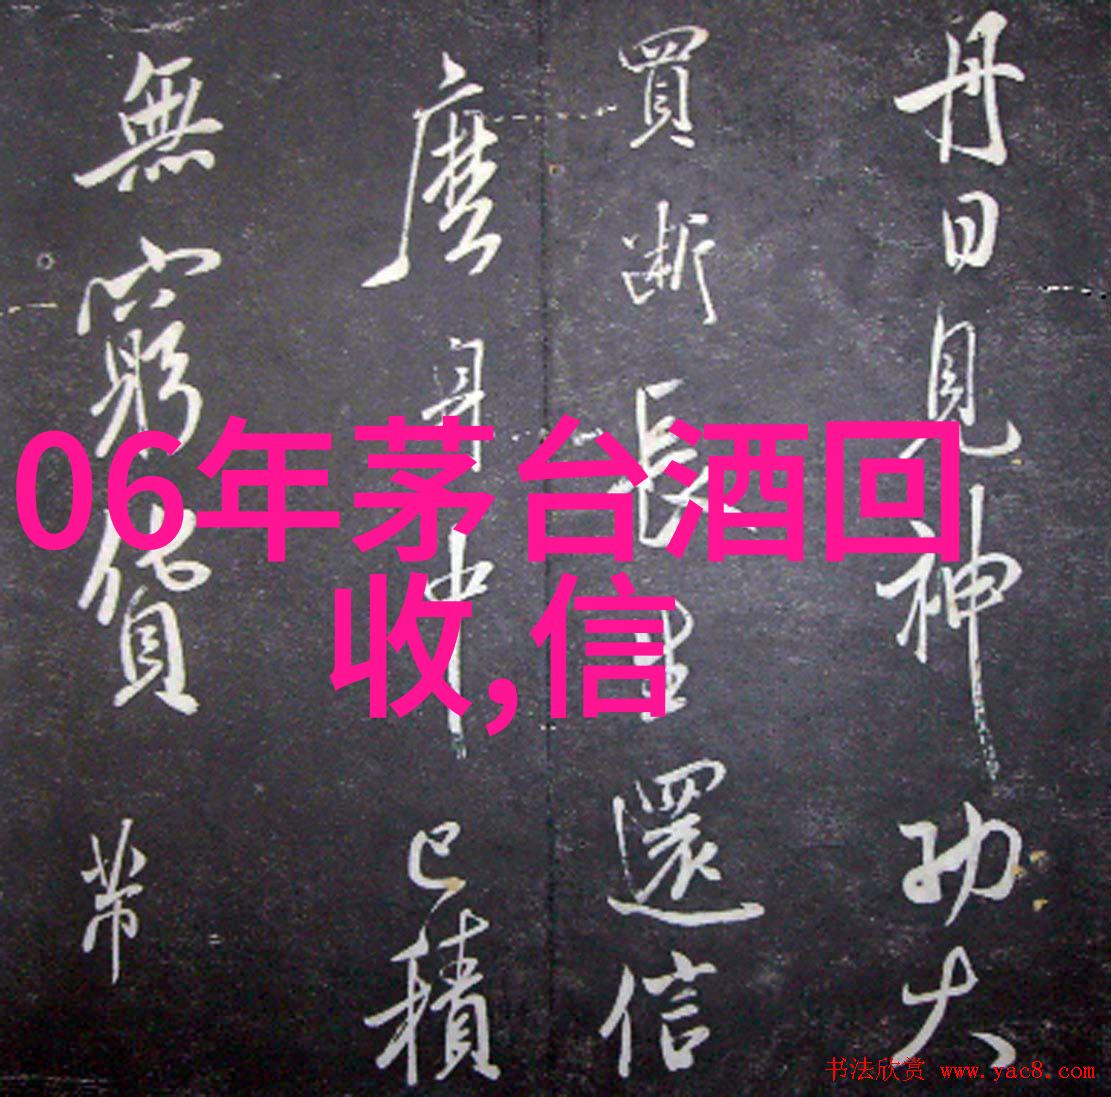 丹日見神功大
買断長生還信
麼身中已積
無窮貨帶
06年茅台酒回
收,信
书法欣赏 www.yac8.com